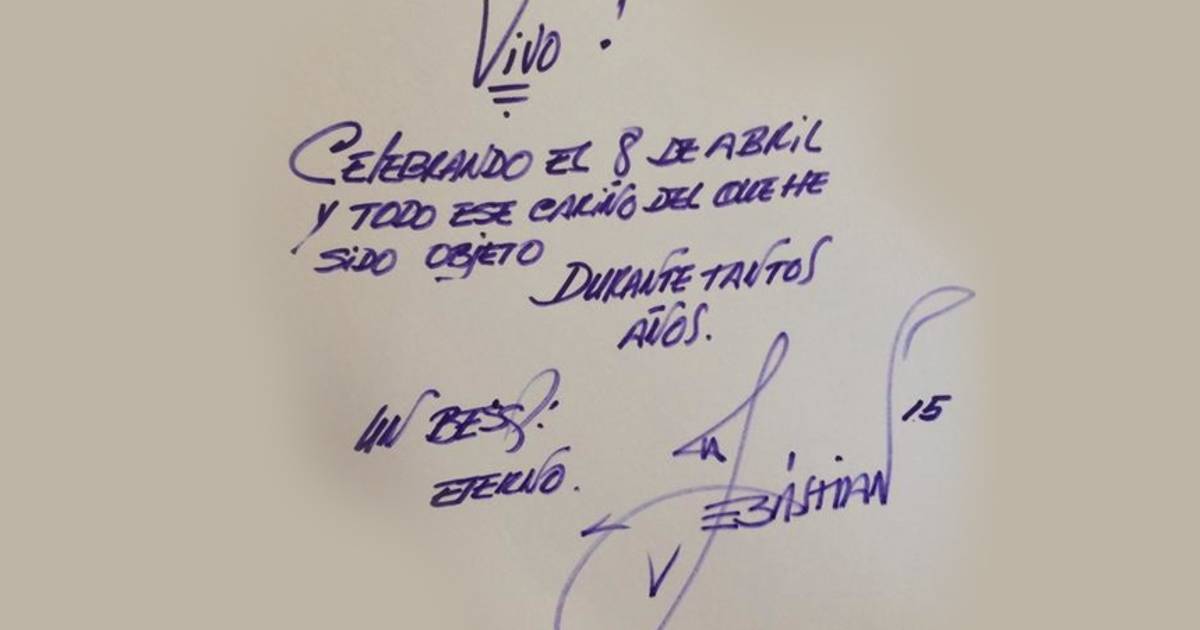 Vivo !
CElEBRANDO EL 8 DE ABRIL
Y TODO ESE CARIÑO DEL QUE HE
SiDO OBjETO
DURANTE TANTOS
AÑOS.
UN BESO:
ETERNO.
15
SEBÁSTIAN
V